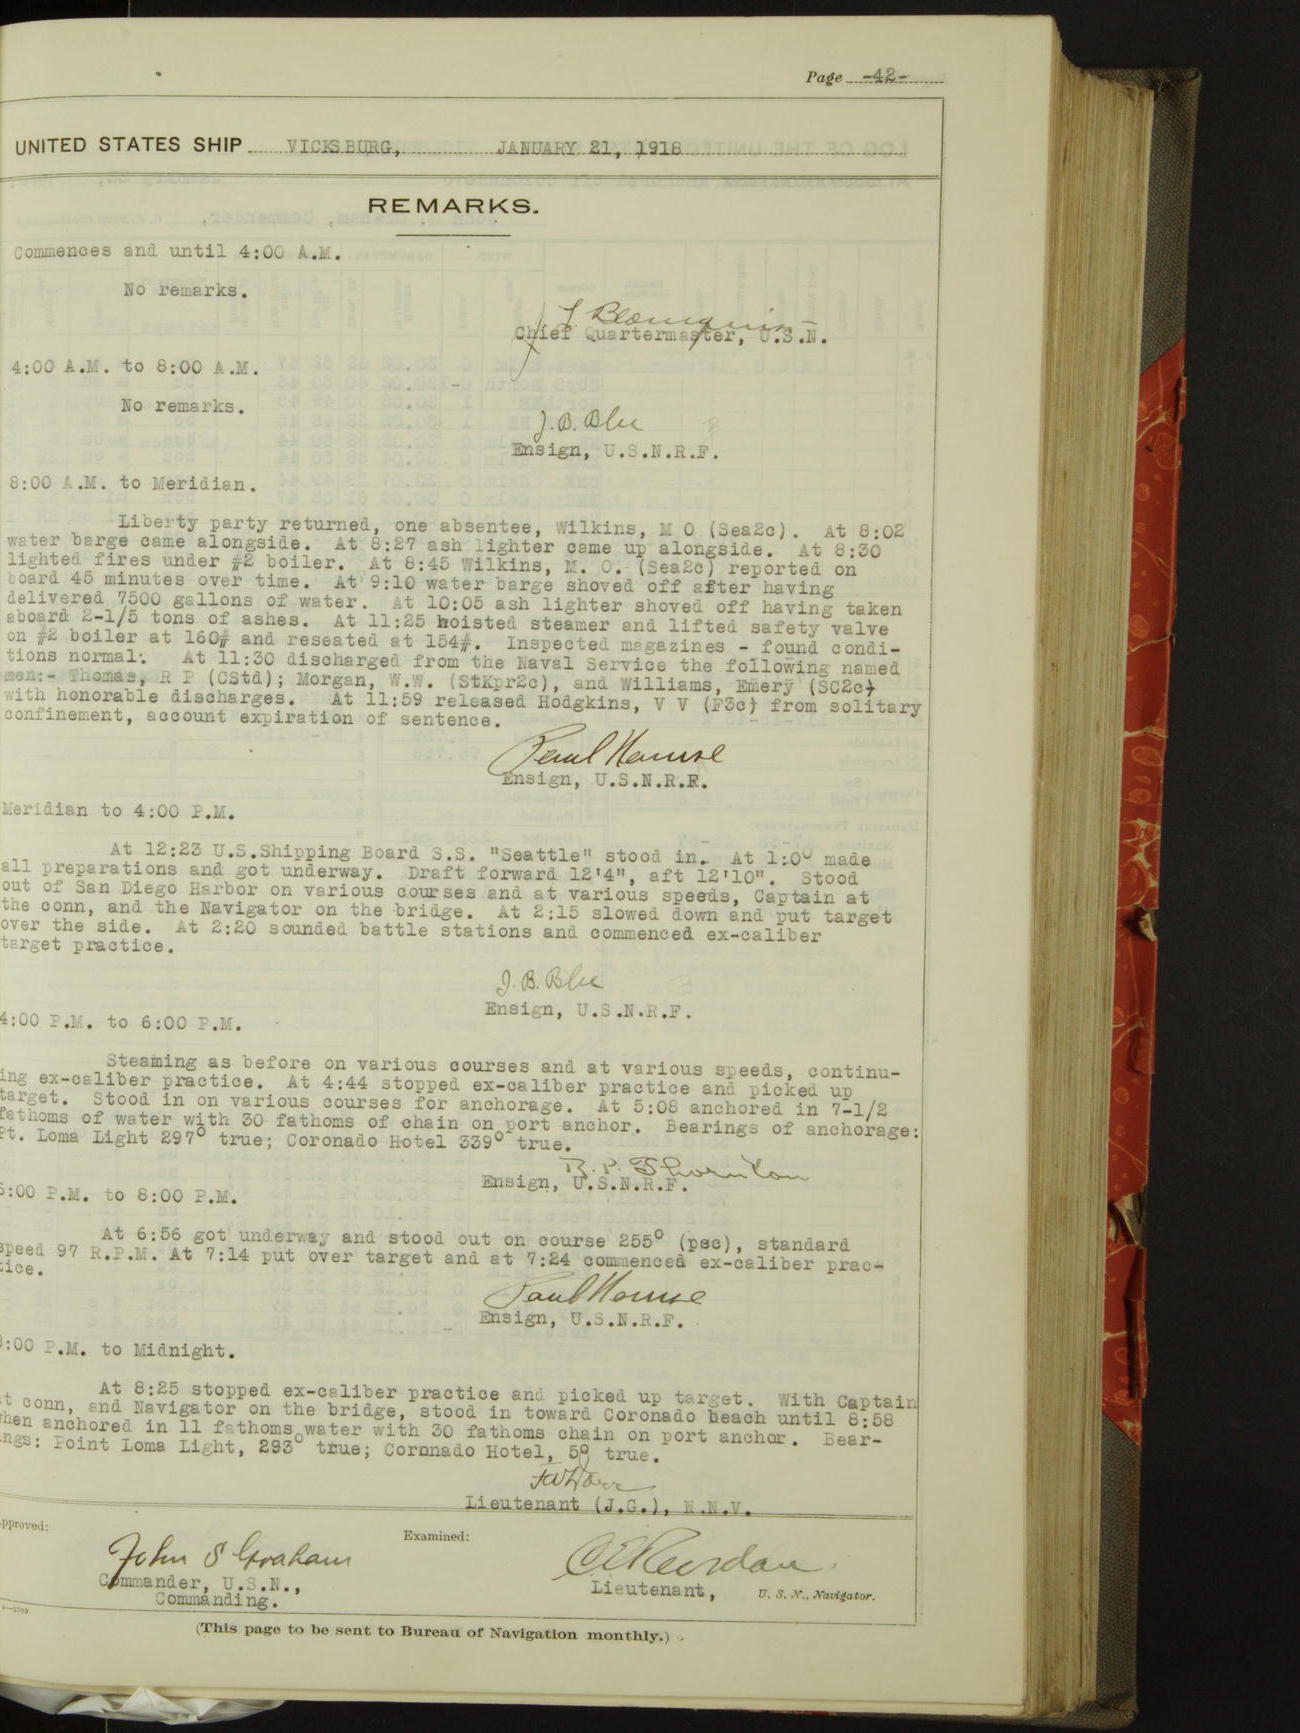 Page -42-
UNITED STATES SHIP VICKSBURG, JANUARY 21, 1918
REMARKS.
Commences and until 4:00 A.M.
No remarks.
Chief Quartermaster, U.S.N.
4:00 A.M. to 8:00 A.M.
No remarks.
J. B. Blee
Ensign, U.S.N.R.F.
8:00 A.M. to Meridian.
Liberty party returned, one absentee, Wilkins, M O (Sea2c). At 8:02
water barge came alongside. At 8:27 ash lighter came up alongside. At 8:30
lighted fires under #2 boiler. At 8:45 Wilkins, M. O. (Sea2c) reported on
board 45 minutes over time. At 9:10 water barge shoved off after having
delivered 7500 gallons of water. At 10:05 ash lighter shoved off having taken
aboard 2-1/5 tons of ashes. At 11:25 hoisted steamer and lifted safety valve
on #2 boiler at 160# and reseated at 154#. Inspected magazines - found condi-
tions normal. At 11:30 discharged from the Naval Service the following named
men:- Thomas, R P (CStd); Morgan, W.W. (StKpr2c), and Williams, Emery (SC2c)
with honorable discharges. At 11:59 released Hodgkins, V V (F3c) from solitary
confinement, account expiration of sentence.
Paul
Ensign, U.S.N.R.F.
Meridian to 4:00 P.M.
At 12:23 U.S.Shipping Board S.S. "Seattle" stood in. At 1:00 made
all preparations and got underway. Draft forward 12'4", aft 12'10". Stood
out of San Diego Harbor on various courses and at various speeds, Captain at
the conn, and the Navigator on the bridge. At 2:15 slowed down and put target
over the side. At 2:20 sounded battle stations and commenced ex-caliber
target practice.
J. B. Blee
Ensign, U.S.N.R.F.
4:00 P.M. to 6:00 P.M.
Steaming as before on various courses and at various speeds, continu-
ing ex-caliber practice. At 4:44 stopped ex-caliber practice and picked up
target. Stood in on various courses for anchorage. At 5:08 anchored in 7-1/2
fathoms of water with 30 fathoms of chain on port anchor. Bearings of anchorage:
Pt. Loma Light 297° true; Coronado Hotel 339° true.
R. P. Thornton
Ensign, U.S.N.R.F.
6:00 P.M. to 8:00 P.M.
At 6:56 got underway and stood out on course 255° (psc), standard
speed 97 R.P.M. At 7:14 put over target and at 7:24 commenced ex-caliber prac-
tice.
Paul
Ensign, U.S.N.R.F.
8:00 P.M. to Midnight.
At 8:25 stopped ex-caliber practice and picked up target. With Captain
at conn, and Navigator on the bridge, stood in toward Coronado beach until 8:58
when anchored in 11 fathoms water with 30 fathoms chain on port anchor. Bear-
ings: Point Loma Light, 293° true; Coronado Hotel, 5° true.
Lieutenant (J.G.), N.N.V.
Approved:
Examined:
John S Graham
Commander, U.S.N.,
Commanding.
Lieutenant, U. S. N., Navigator.
(This page to be sent to Bureau of Navigation monthly.)